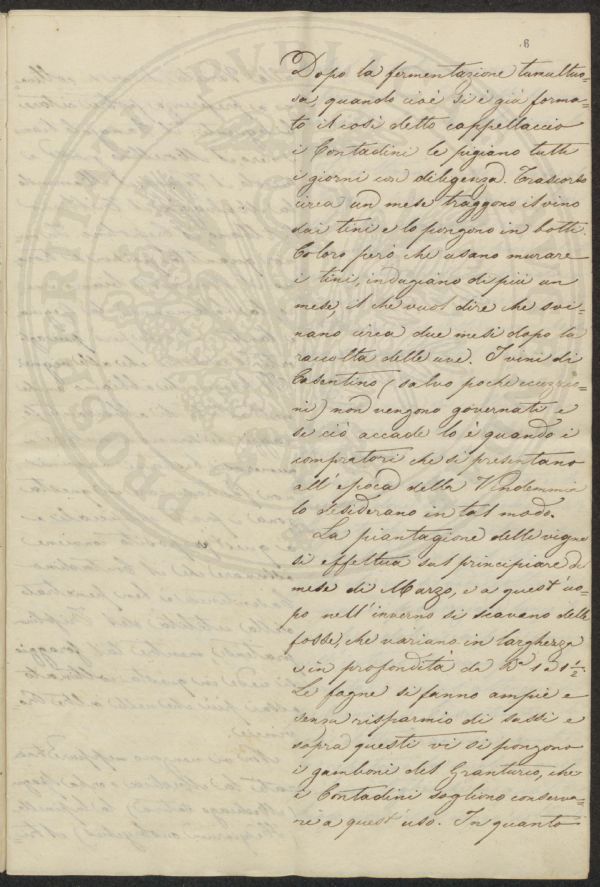 6
Dopo la fermentazione tumultuo=
sa, quando cioè si è già forma=
to il così detto cappellaccio
i Contadini le pigiano tutti
i giorni con diligenza. Trascorso
circa un mese traggono il vino
dai tini e lo pongono in botti.
Coloro però che usano murare
i tini, indugiano di più un
mese, il che vuol dire che svi=
nano circa due mesi dopo la
raccolta delle uve. I vini di
Casentino (salvo poche eccezio=
ni) non vengono governati e
se ciò accade lo è quando i
compratori che si presentano
all'epoca della Vendemmia
lo desiderano in tal modo.
La piantagione delle vigne
si effettua sul principiare di
mese di Marzo, e a quest'uo=
po nell'inverno si scavano delle
fosse, che variano in larghezza
e in profondità da Ba 1 a 1 1/2
Le fogne si fanno ampie e
senza risparmio di sassi e
sopra questi vi si pongono
i gamboni del Granturco, che
i Contadini sogliono conserva=
re a quest'uso. In quanto
PROSPERITATI PUBLICAE